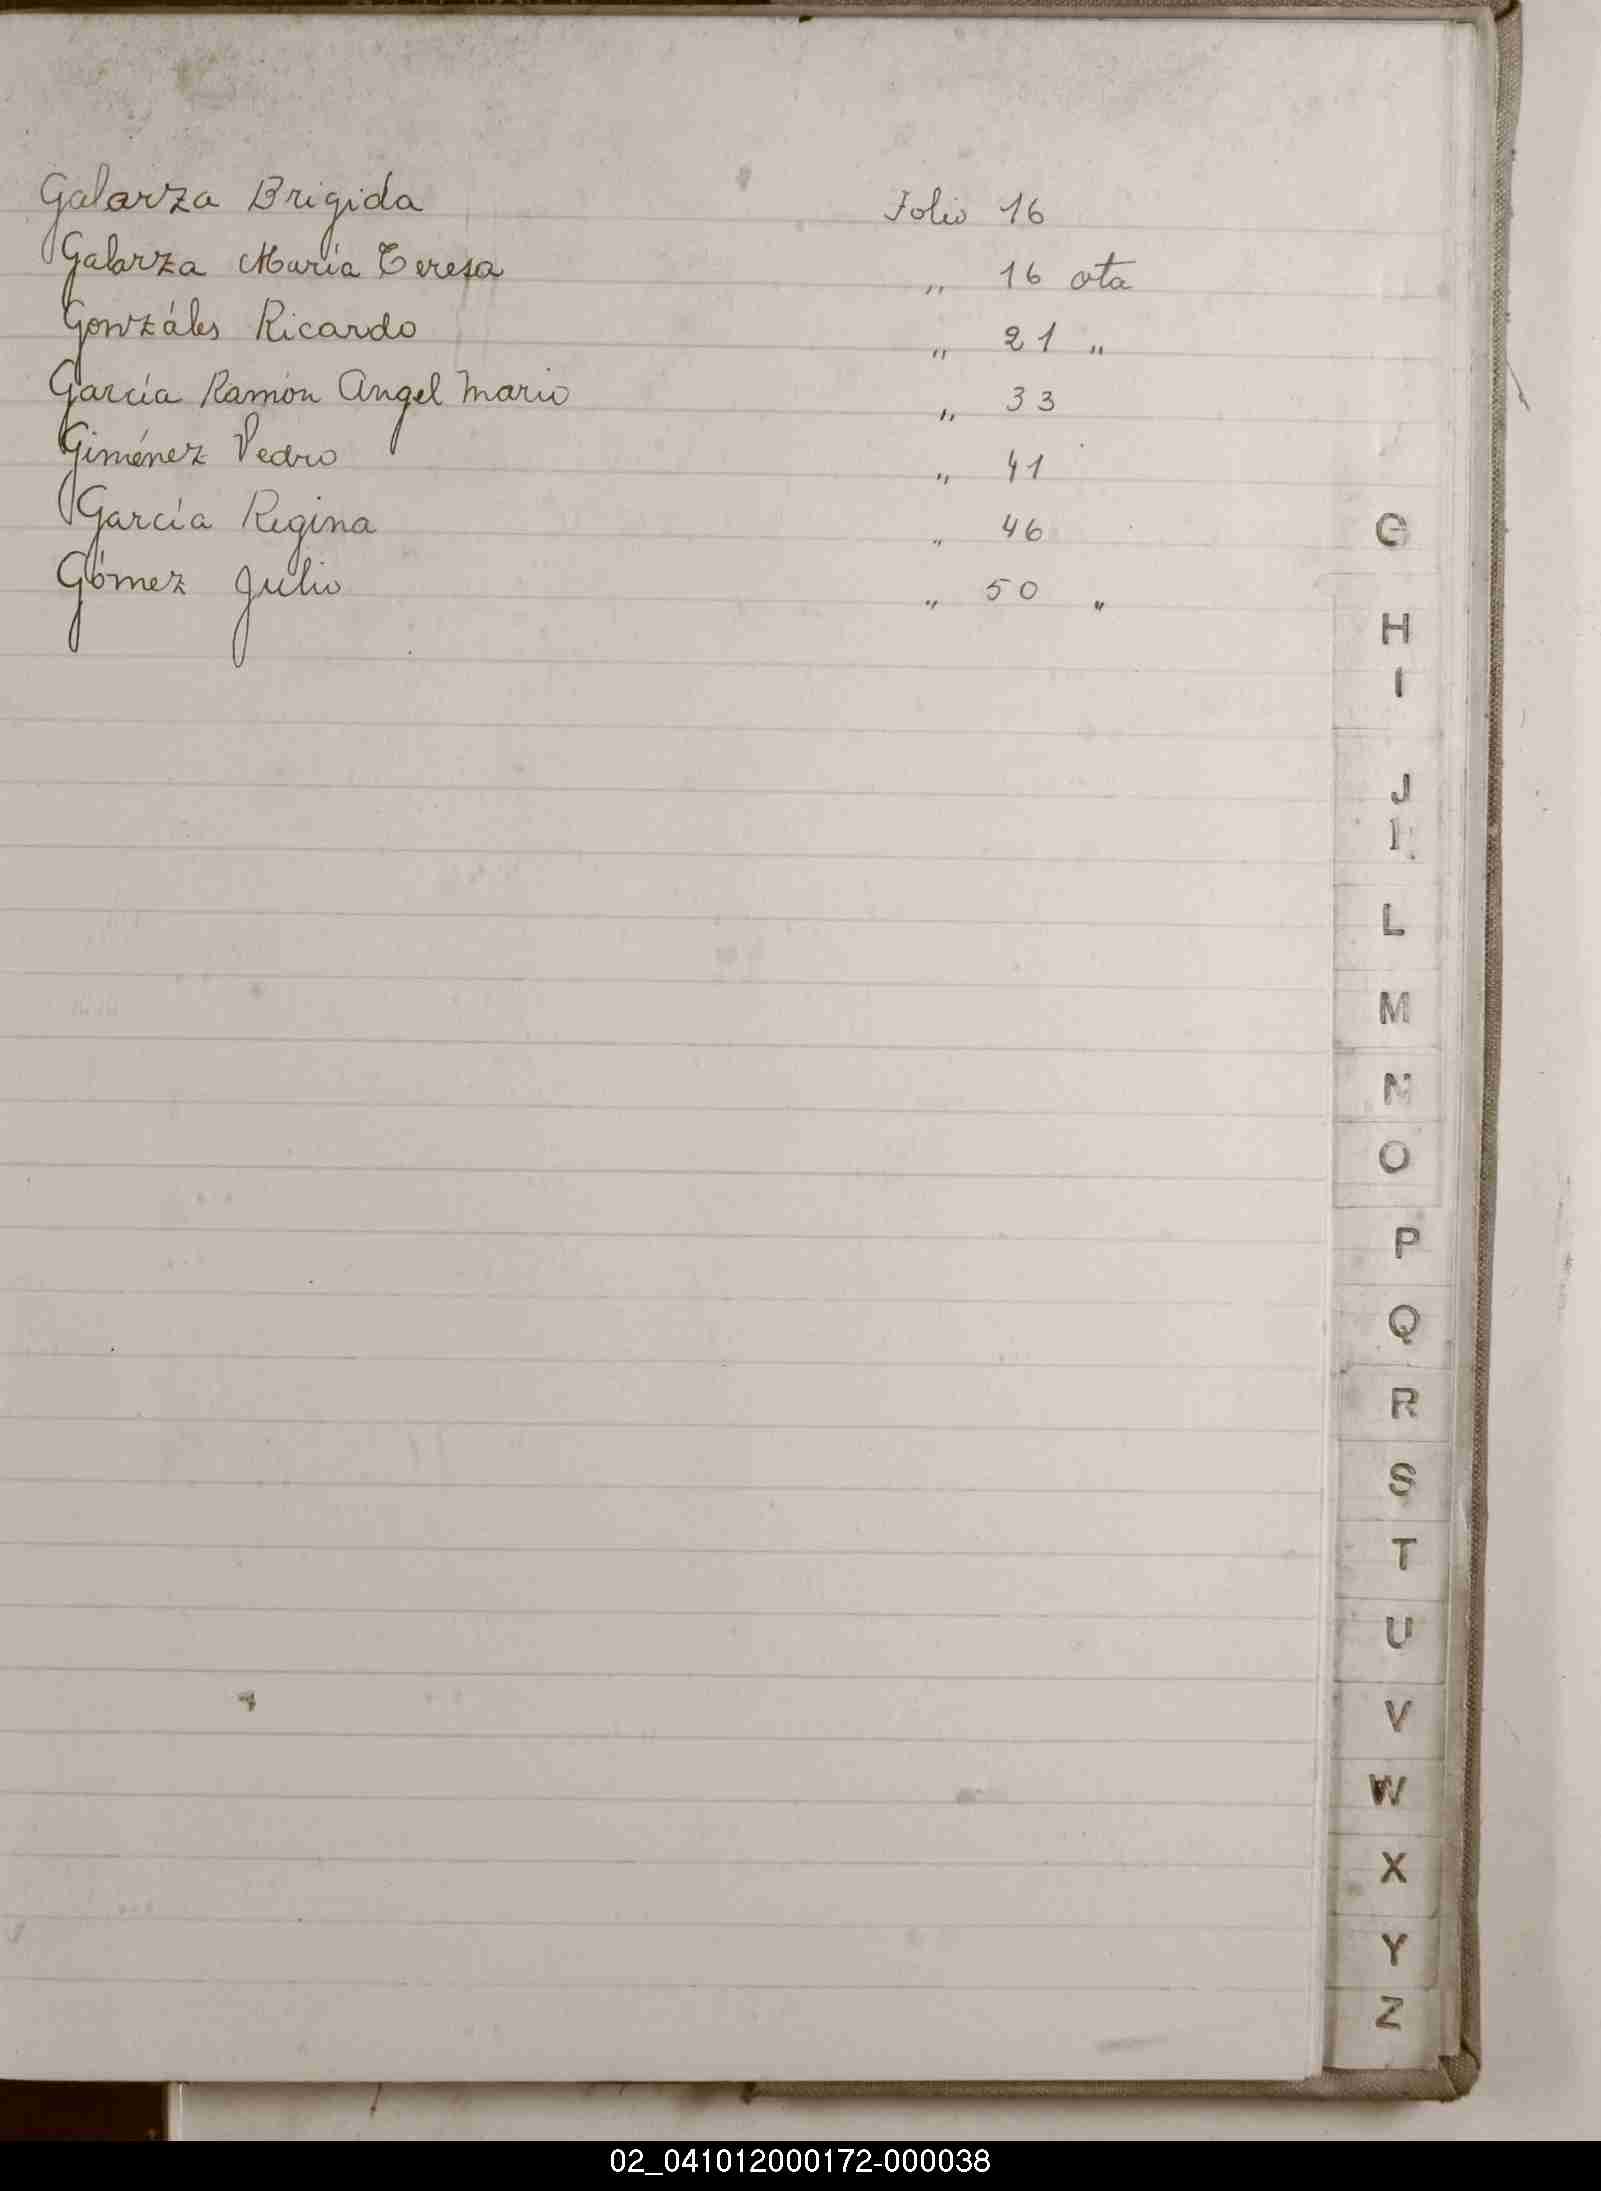 Galarza Brigida Folio 16
Galarza María Teresa „ 16 vta
Gonzáles Ricardo „ 21 „
García Ramón Angel Mario „ 33
Giménez Pedro „ 41
García Regina „ 46
Gómez Julio „ 50 „
G
H
I
J
L
M
N
O
P
Q
R
S
T
U
V
W
X
Y
Z
02_041012000172-000038